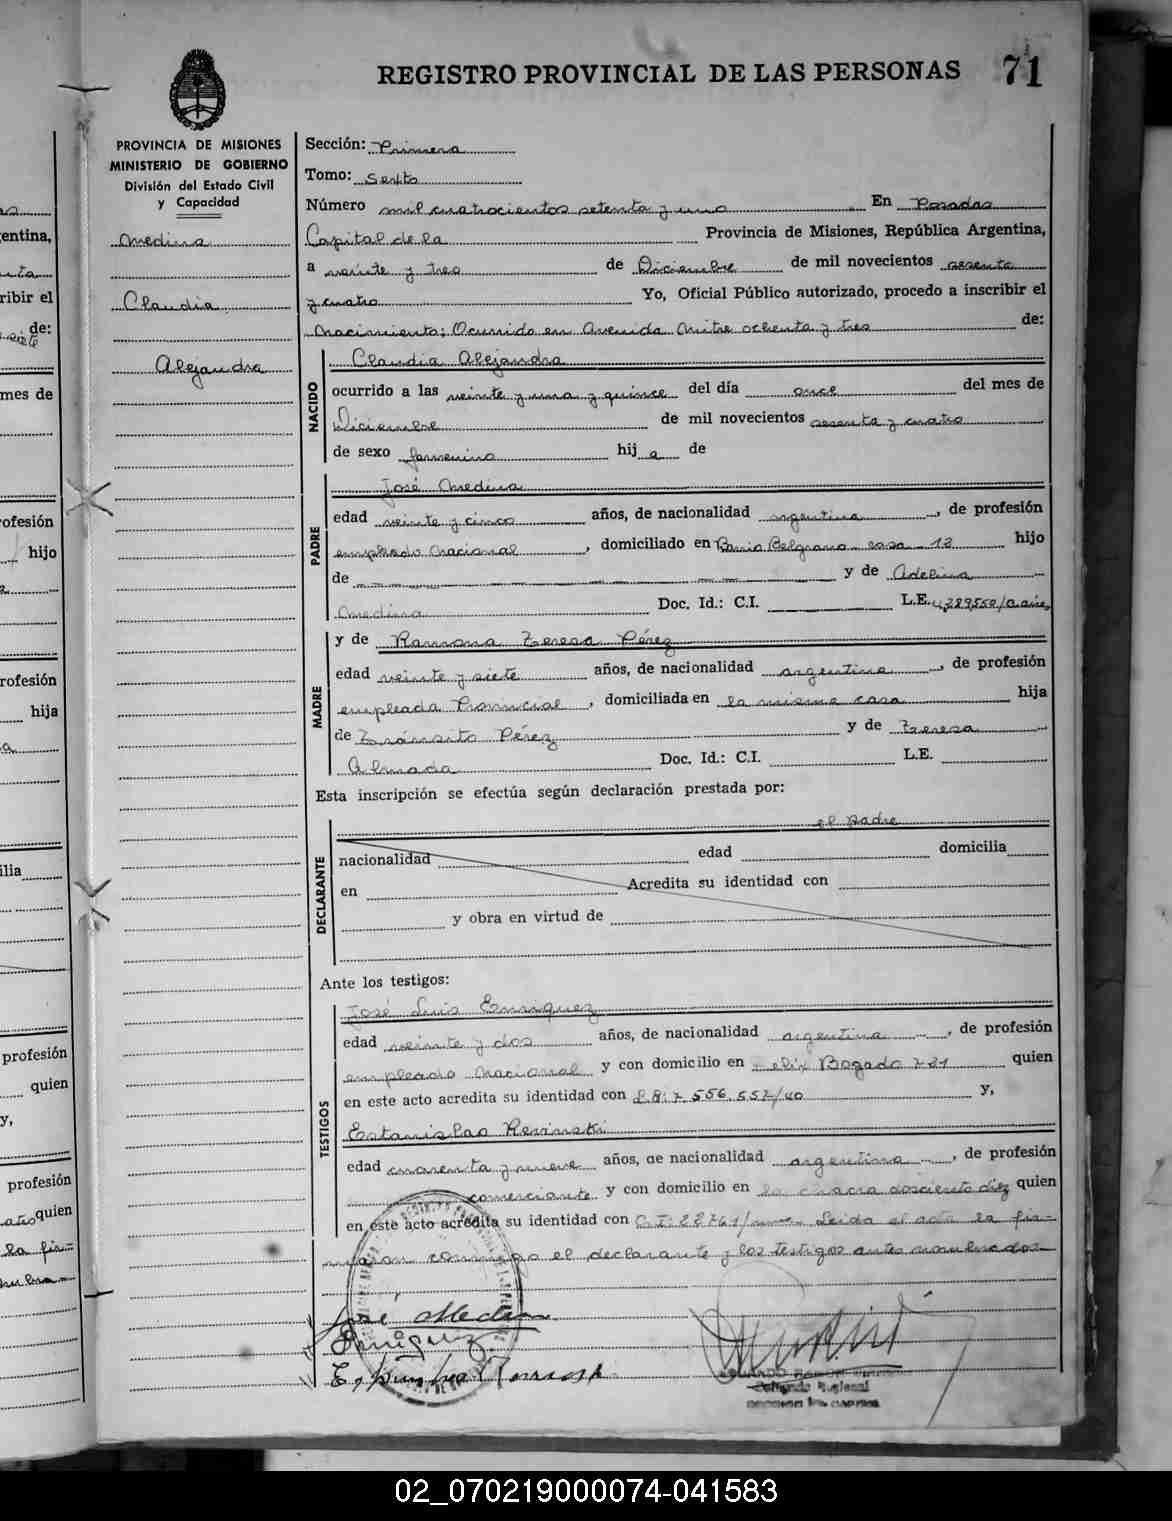 REGISTRO PROVINCIAL DE LAS PERSONAS 71
PROVINCIA DE MISIONES
MINISTERIO DE GOBIERNO
División del Estado Civil
y Capacidad
Medina
Claudia
Alejandra
Sección: Primera
Tomo: Sexto
Número mil cuatrocientos setenta y uno En Posadas
Capital de la Provincia de Misiones, República Argentina,
a veinte y tres de Diciembre de mil novecientos sesenta
y cuatro Yo, Oficial Público autorizado, procedo a inscribir el
Nacimiento; Ocurrido en Avenida Mitre ochenta y tres de:
Claudia Alejandra
NACIDO
ocurrido a las veinte y una y quince del día once del mes de
Diciembre de mil novecientos sesenta y cuatro
de sexo femenino hij a de
José Medina
PADRE
edad veinte y cinco años, de nacionalidad argentina, de profesión
empleado Nacional, domiciliado en Barrio Belgrano casa 13 hijo
de y de Adelina
Medina Doc. Id.: C.I. L.E.
y de Ramona Teresa Pérez
MADRE
edad veinte y siete años, de nacionalidad argentina, de profesión
empleada Provincial, domiciliada en la misma casa hija
de Tránsito Pérez y de Teresa
Almada Doc. Id.: C.I. L.E.
Esta inscripción se efectúa según declaración prestada por:
el padre
DECLARANTE
nacionalidad edad domicilia
en Acredita su identidad con
y obra en virtud de
Ante los testigos:
José Luis Enriquez
TESTIGOS
edad veinte y dos años, de nacionalidad argentina, de profesión
empleado Nacional y con domicilio en Felix Bogado 721 quien
en este acto acredita su identidad con 7.556.557/40 y,
Estanislao
edad cuarenta y nueve años, de nacionalidad argentina, de profesión
comerciante y con domicilio en la chacra dosciento diez quien
en este acto acredita su identidad con C.I: Leida el acta la fir-
maron conmigo el declarante y los testigos antes nombrados
José Medina
Enriquez
Delegado Regional
02_070219000074-041583